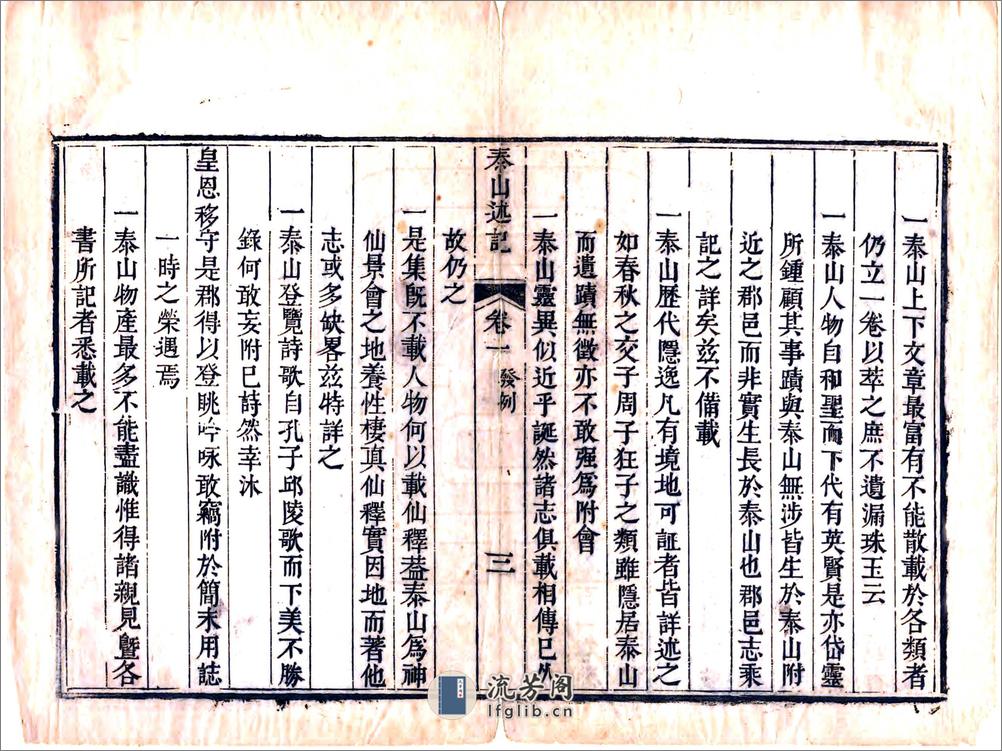 一泰山上下文章最富有不能散載於各類者
仍立一卷以萃之庶不遺漏珠玉云
一泰山人物自和聖而下代有英賢是亦岱靈
所鍾顧其事蹟與泰山無涉皆生於泰山附
近之郡邑而非實生長於泰山也郡邑志乘
記之詳矣茲不備載
一泰山歷代隱逸凡有境地可証者皆詳述之
如春秋之交子周子狂子之類雖隱居泰山
而遺蹟無徵亦不敢强爲附會
一泰山靈異似近乎誕然諸志俱載相傳已久
故仍之
泰山述記
卷一
發例
三
一是集旣不載人物何以載仙釋葢泰山爲神
仙景會之地養性棲真仙釋實因地而著他
志或多缺畧茲特詳之
一泰山登覽詩歌自孔子邱陵歌而下美不勝
錄何敢妄附已詩然幸沐
皇恩移守是郡得以登眺吟咏敢竊附於簡末用誌
一時之榮遇焉
一泰山物產最多不能盡識惟得諸親見暨各
書所記者悉載之
流芳阁
lfglib.cn